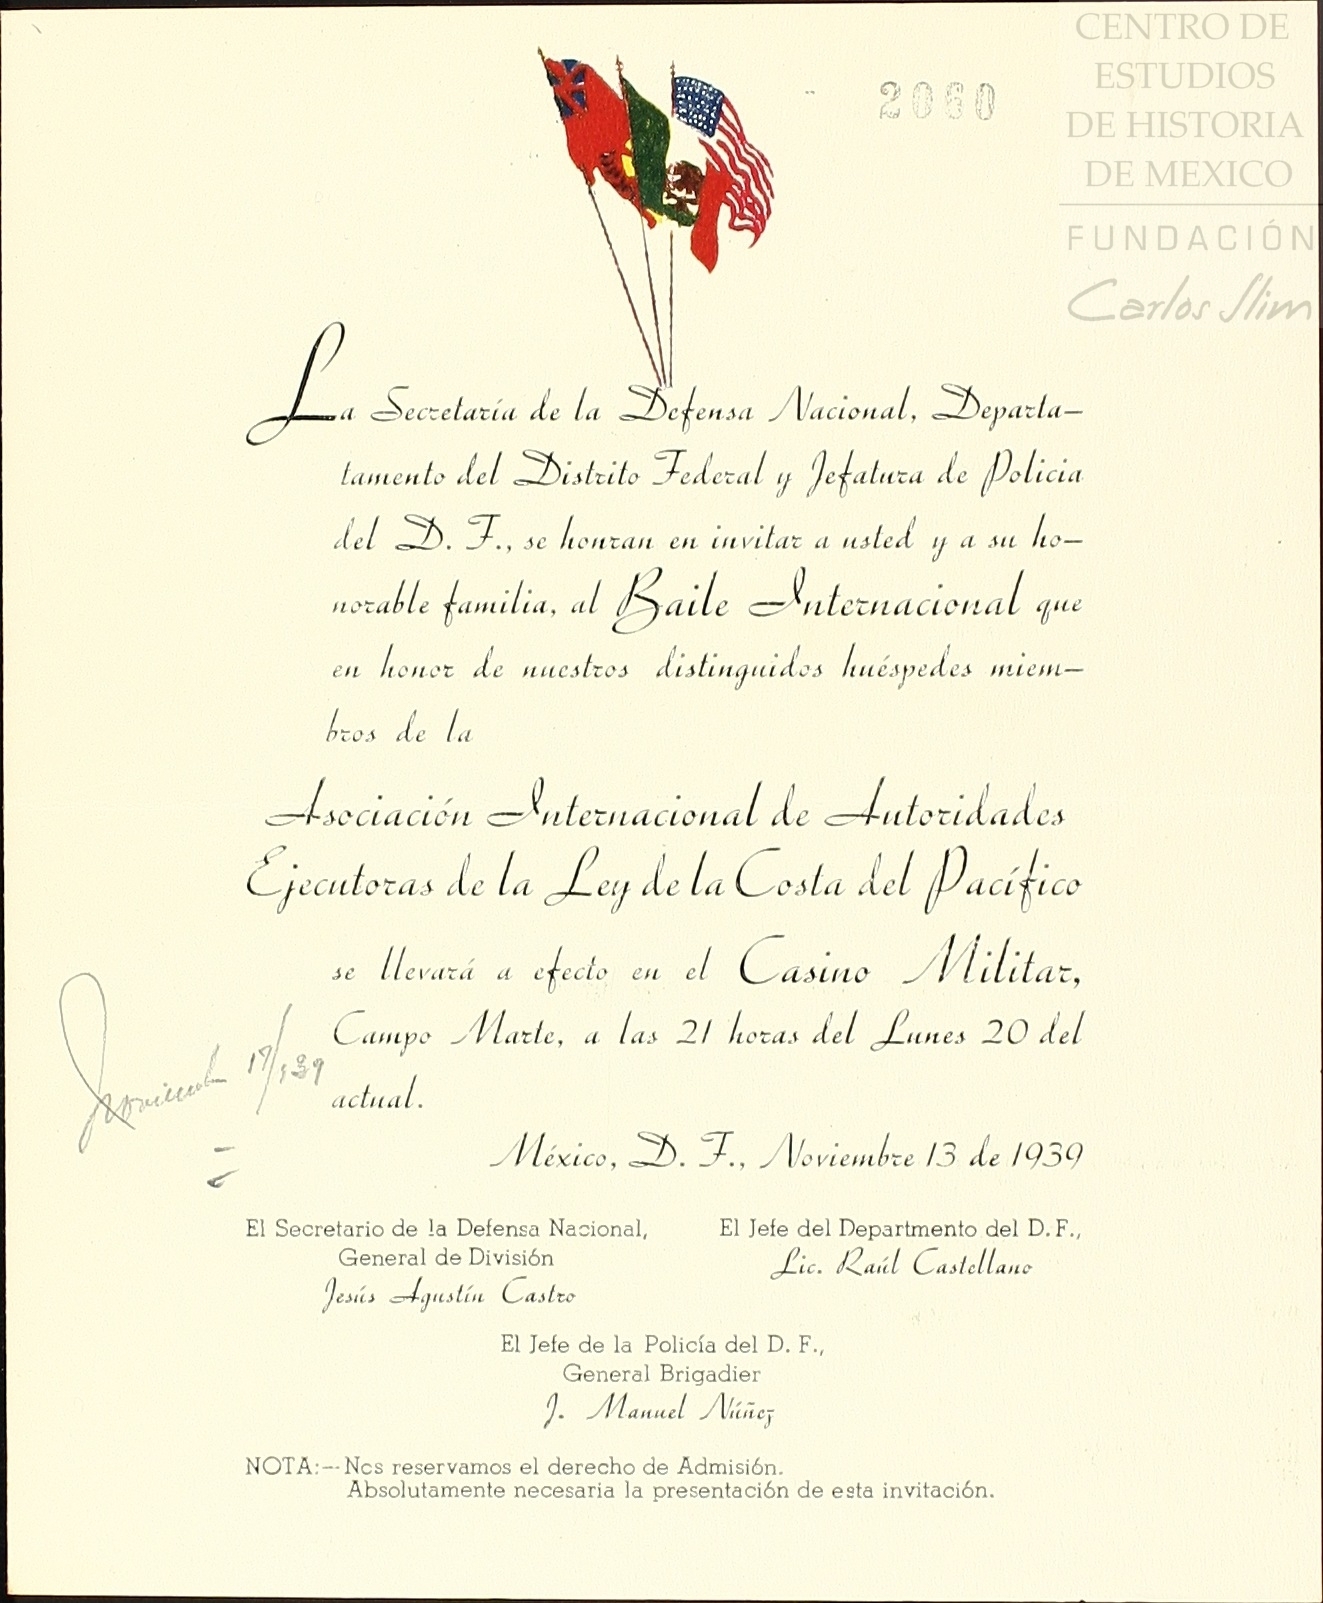 CENTRO DE
ESTUDIOS
DE HISTORIA
DE MEXICO
FUNDACIÓN
Carlos Slim
2060
La Secretaría de la Defensa Nacional, Departa-
tamento del Distrito Federal y Jefatura de Policia
del D. F., se honran en invitar a usted y a su ho-
norable familia, al Baile Internacional que
en honor de nuestros distinguidos huéspedes miem-
bros de la
Asociación Internacional de Autoridades
Ejecutoras de la Ley de la Costa del Pacífico
se llevará a efecto en el Casino Militar,
Campo Marte, a las 21 horas del Lunes 20 del
actual.
Noviembre 17/939
México, D. F., Noviembre 13 de 1939
El Secretario de la Defensa Nacional,
General de División
Jesús Agustín Castro
El Jefe del Departmento del D. F.,
Lic. Raúl Castellano
El Jefe de la Policía del D. F.,
General Brigadier
J. Manuel Núñez
NOTA:-- Nos reservamos el derecho de Admisión.
Absolutamente necesaria la presentación de esta invitación.